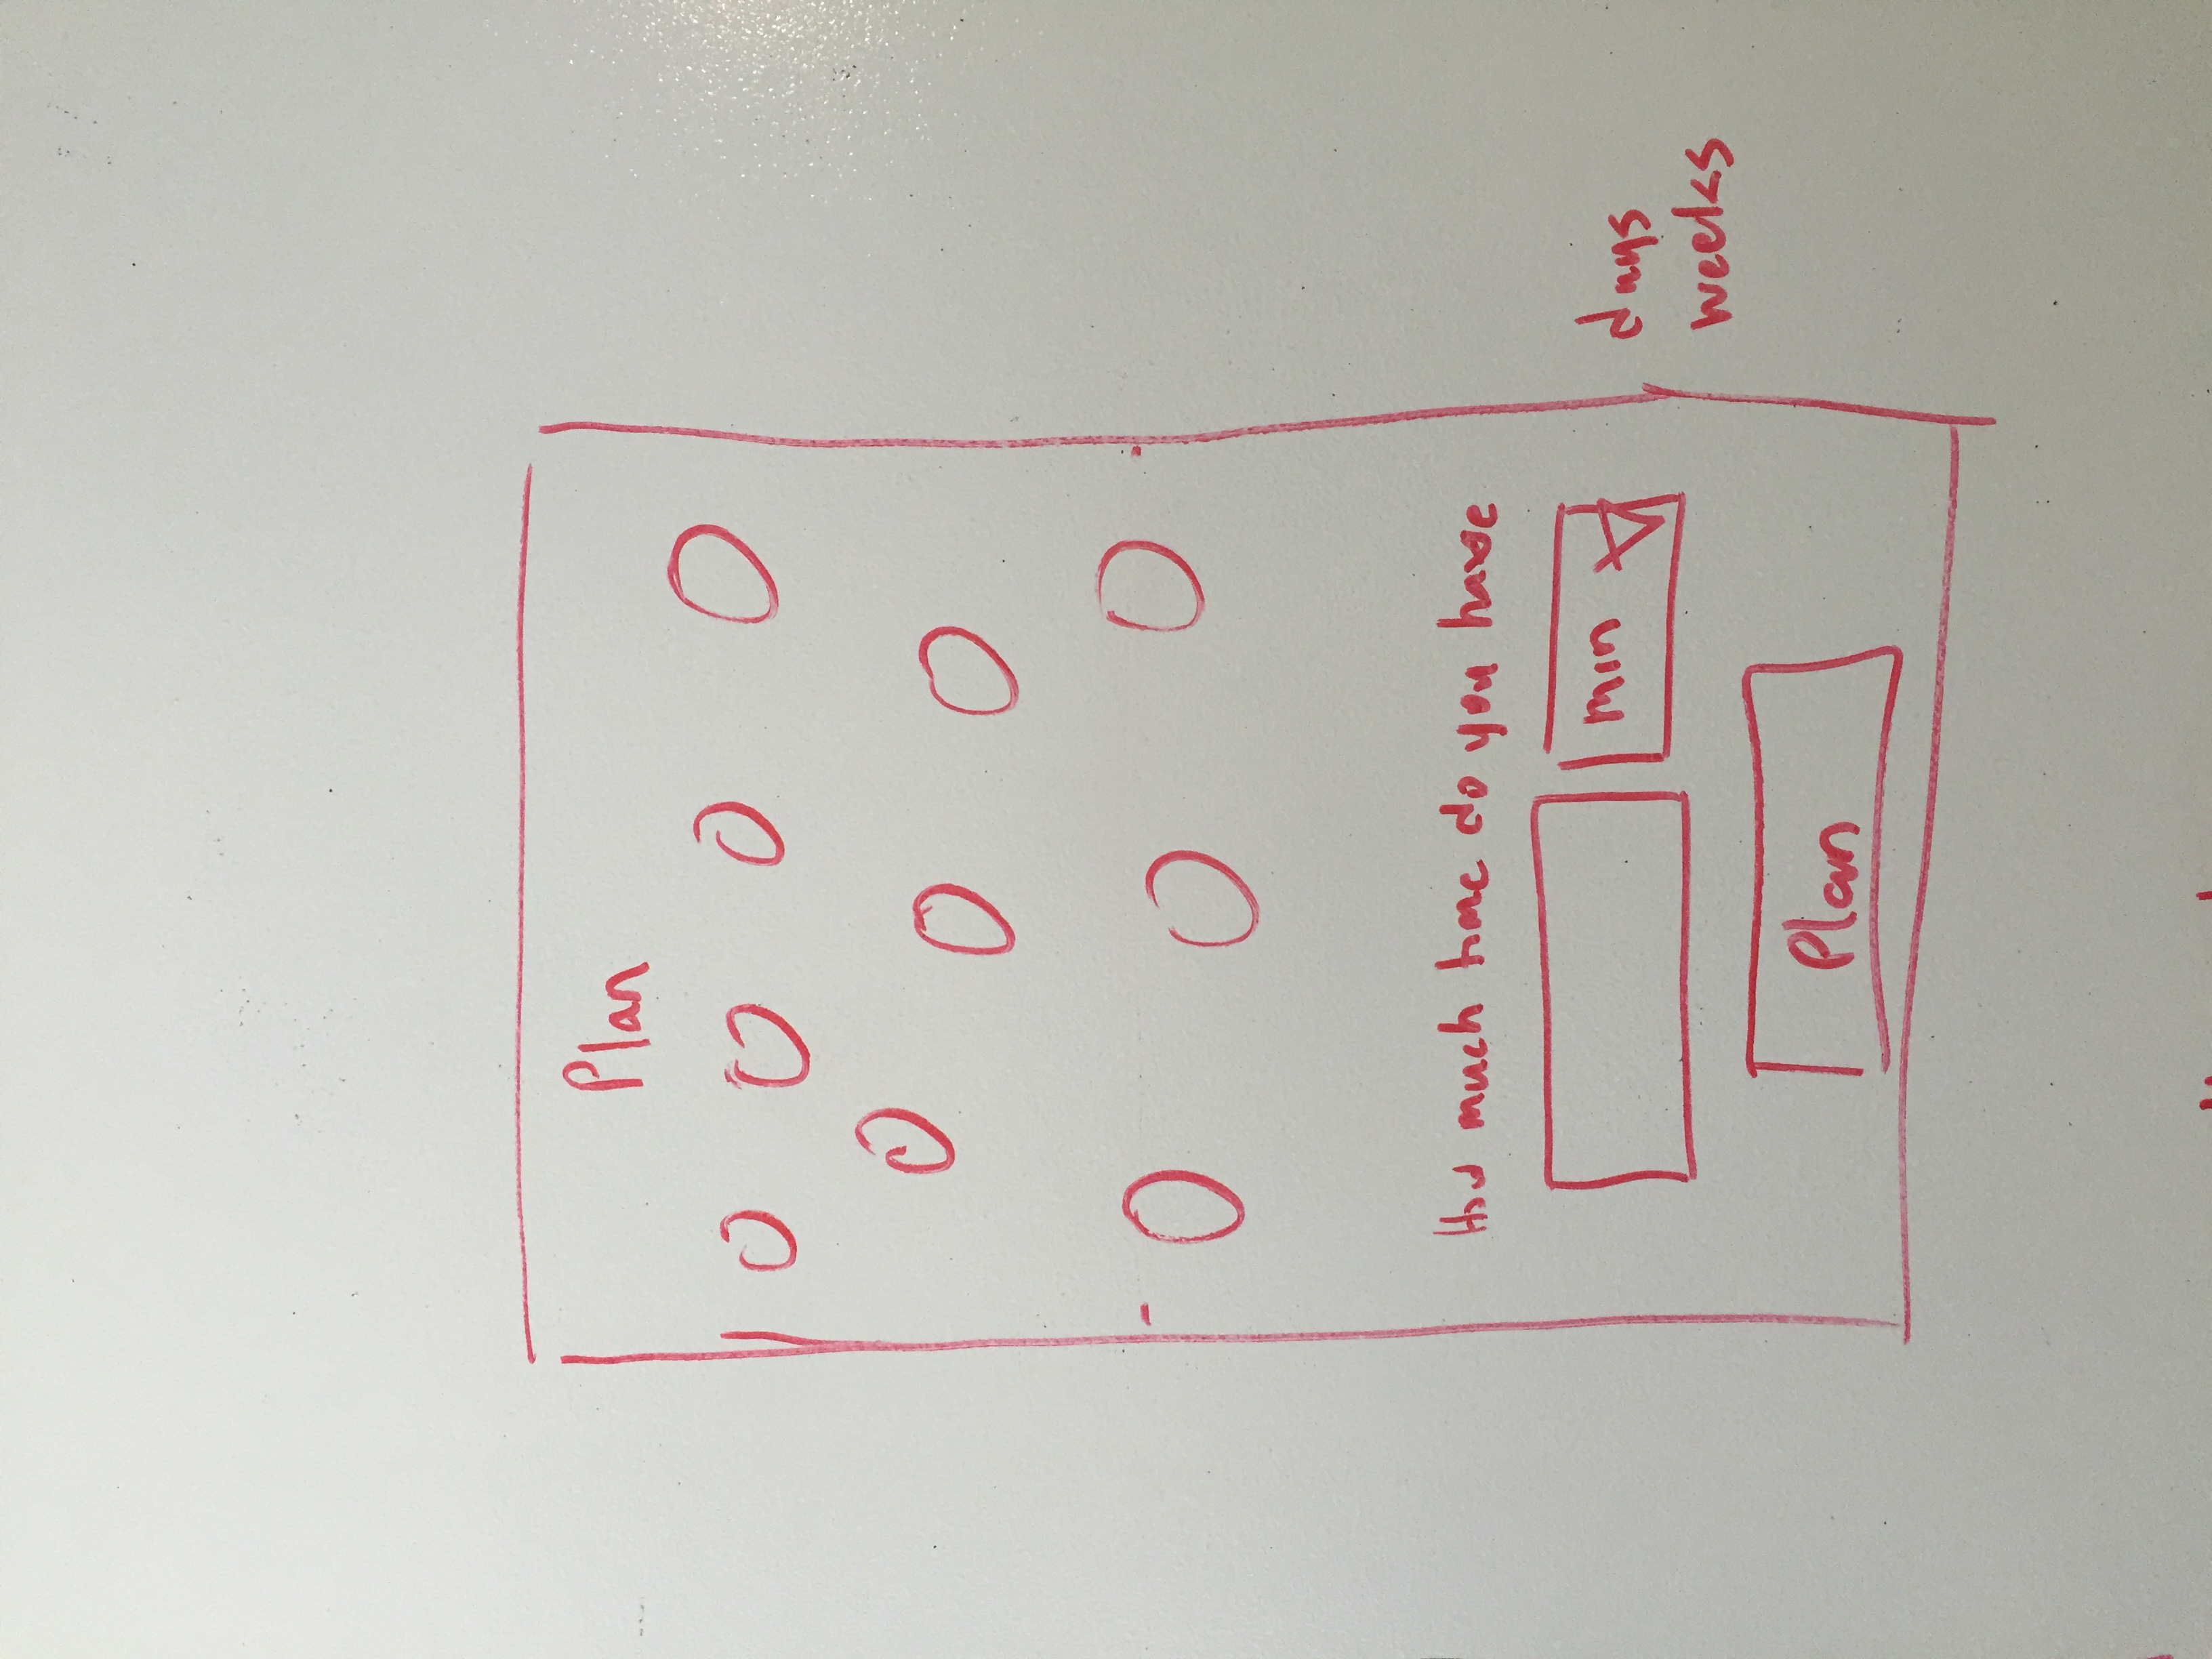 Plan
How much time do you have
min
days
weeks
Plan